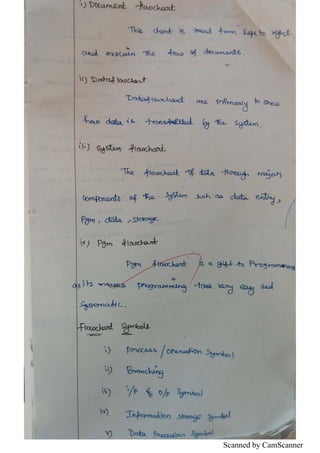 i) Document flowchart
This chart is read from left to right
and explain the flow of documents.
ii) Dataflowchart
Dataflowchart are primarly to show
how data is transmitted by the system
iii) System flowchart
The flowchart of data through major
components of the system such as data entry,
Pgm, data, storage
iv) Pgm flowchart
Pgm flowchart is a gift to Programming
as its makes programming task very easy and
Systematic.
Flowchart Symbols
i) process / operation Symbol
ii) Branching
iii) i/p & o/p Symbol
iv) Information storage Symbol
v) Data Procession Symbol
Scanned by CamScanner